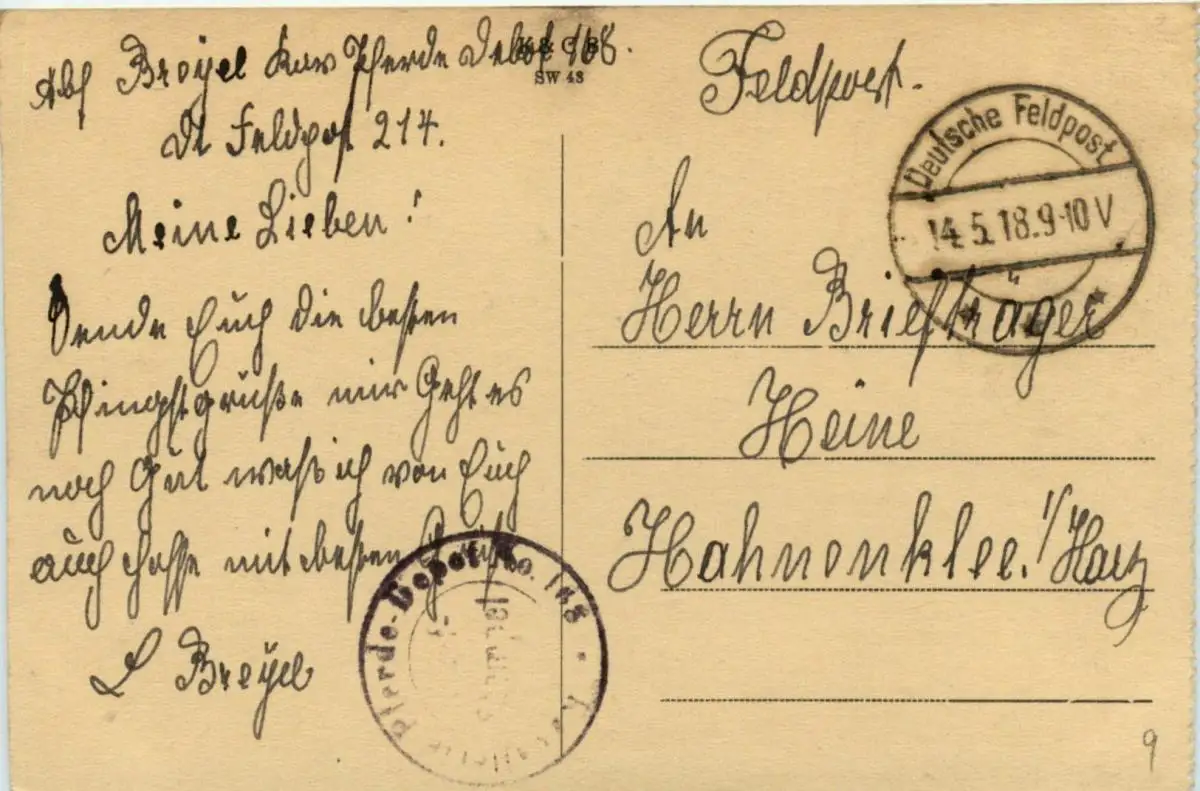 Abs Breyel Kav Pferde Depot 168.
Dt Feldpost 214.
SW 48
Meine Lieben!
Sende Euch die besten
Pfingstgrüße mir Geht es
noch Gut was ich von Euch
auch hoffe mit besten Gruß
L Breyel
Pferde-Depot No. 168
Feldpost.
Deutsche Feldpost
14.5.18.9-10V
An
Herrn Briefträger
Heine
Hahnenklee. i/Harz
9